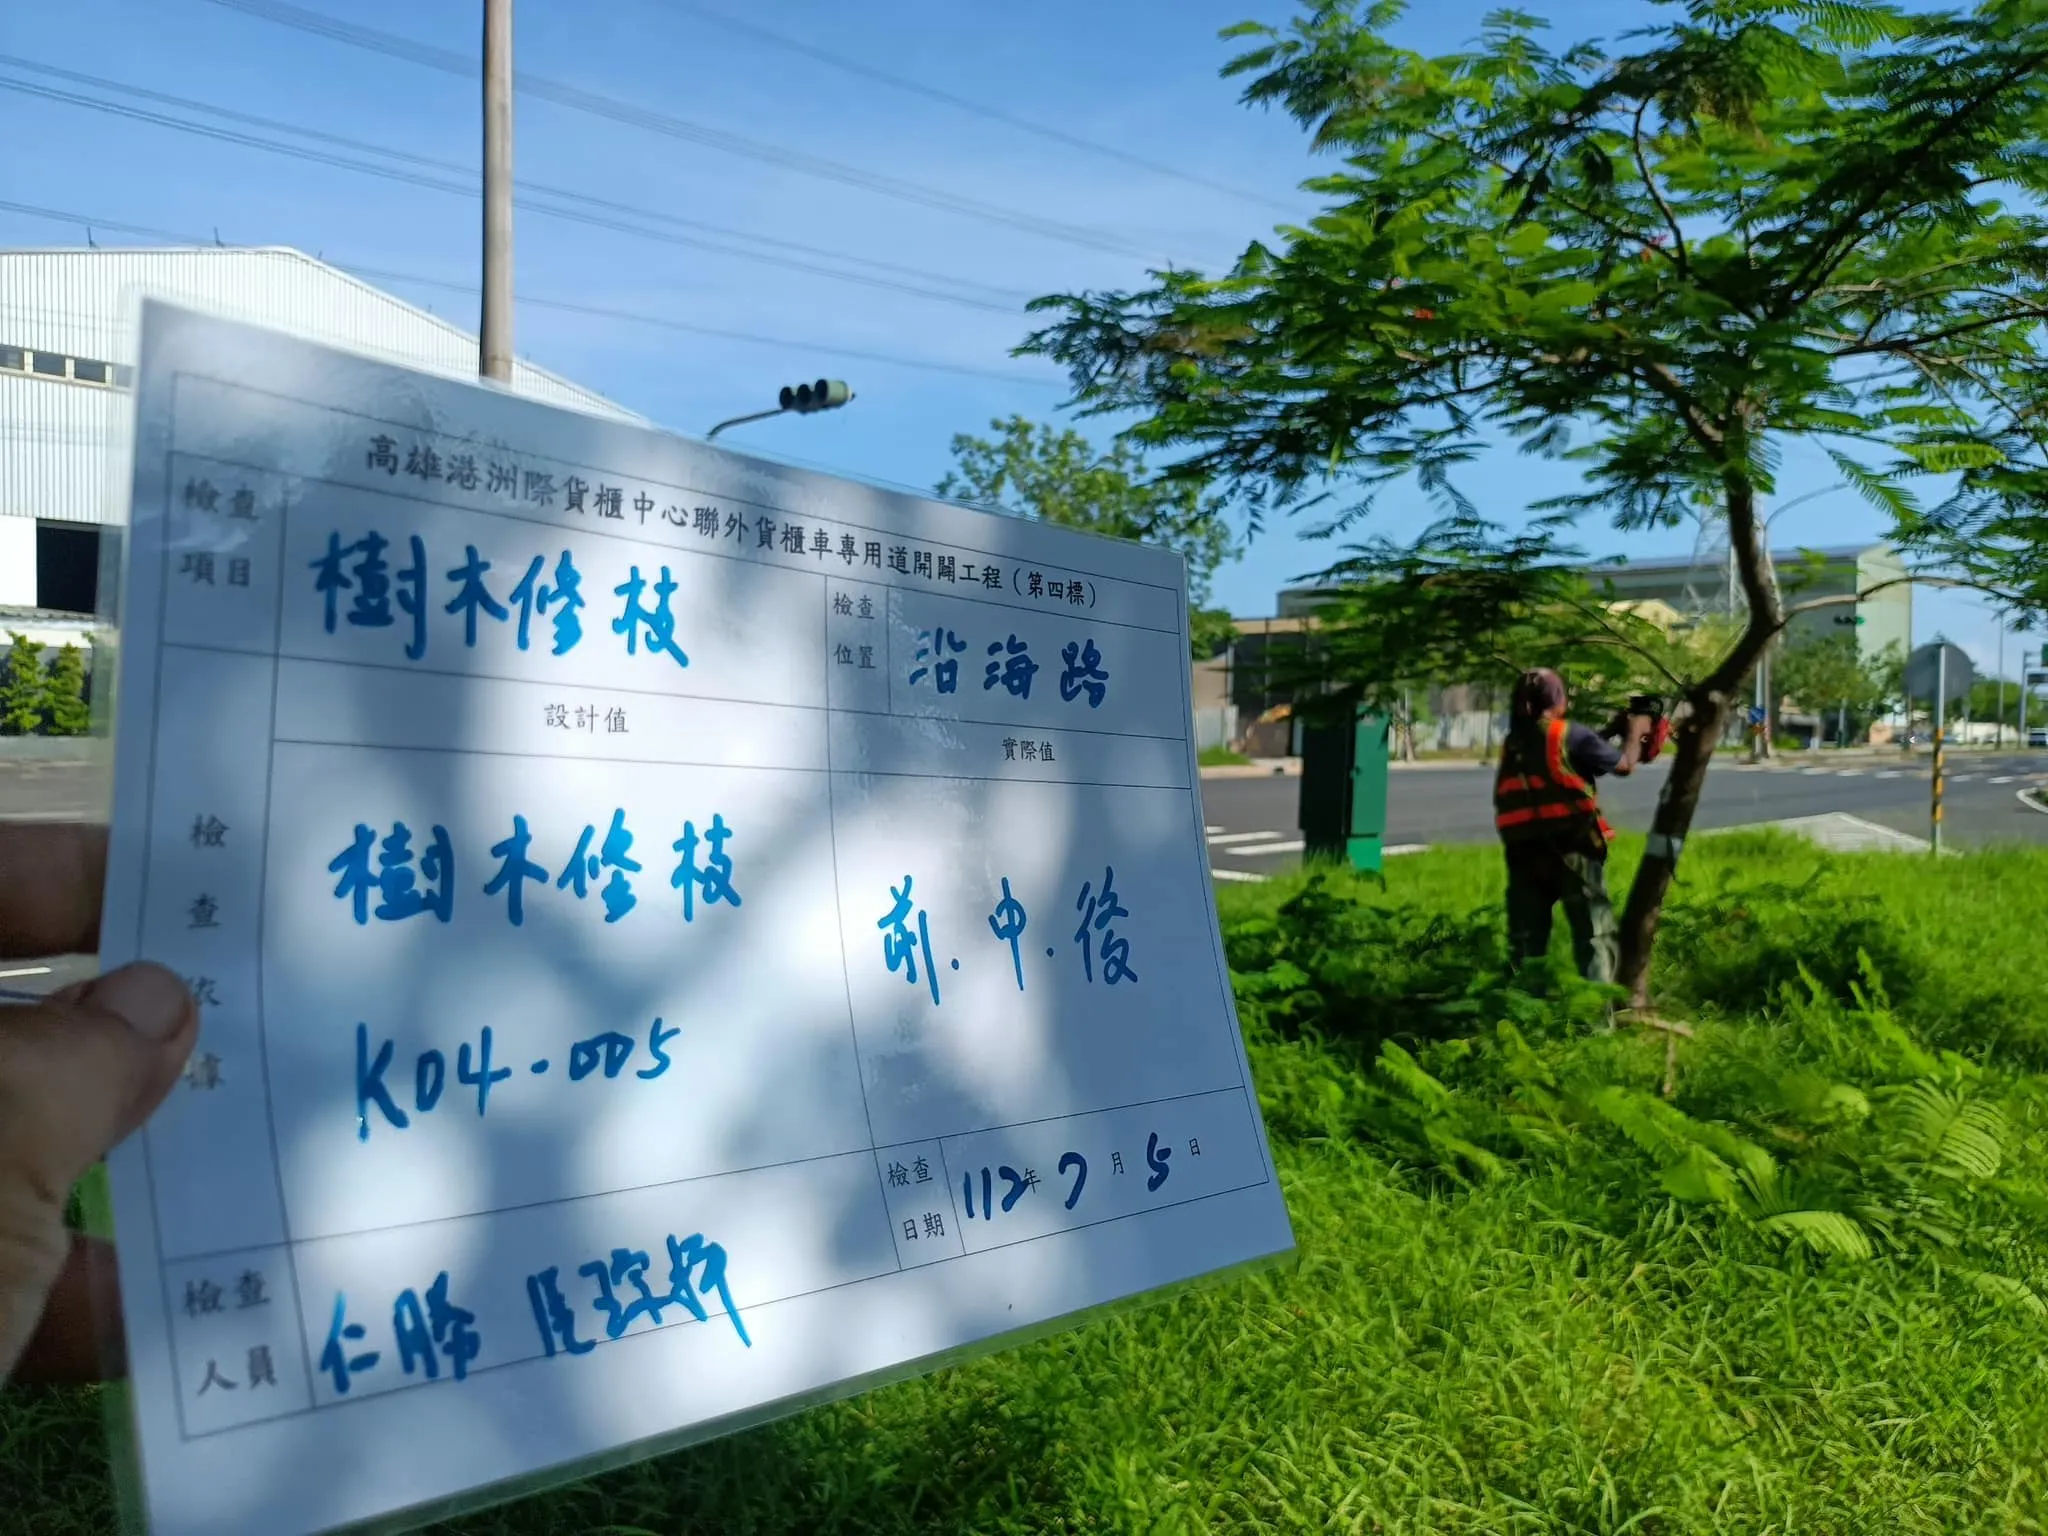 高雄港洲際貨櫃中心聯外貨櫃車專用道開闢工程（第四標）
檢查項目
樹木修枝
檢查位置
沿海路
設計值
實際值
檢查依據
樹木修枝
K04-005
前.中.後
檢查人員
仁勝
檢查日期
112年7月5日